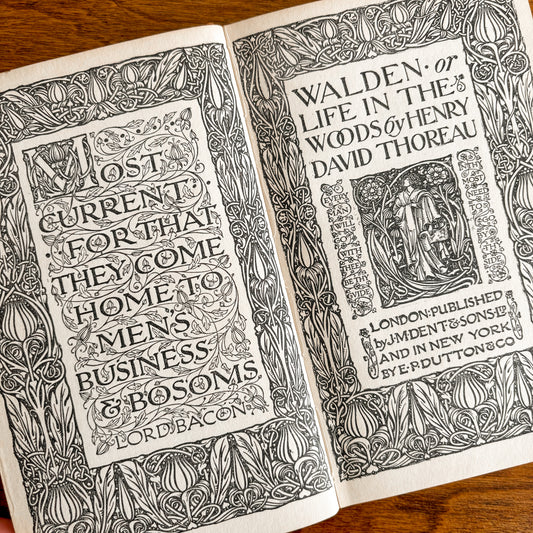 MOST
CURRENT
· FOR THAT ·
THEY COME
HOME TO
MEN'S
BUSINESS
& BOSOMS
LORD BACON
WALDEN · or
LIFE IN THE
WOODS by HENRY
DAVID THOREAU
EVERY
MAN
I WILL
GO
WITH
THEE
LONDON: PUBLISHED
by J·M·DENT & SONS LTD
AND IN NEW YORK
BY E·P·DUTTON & CO